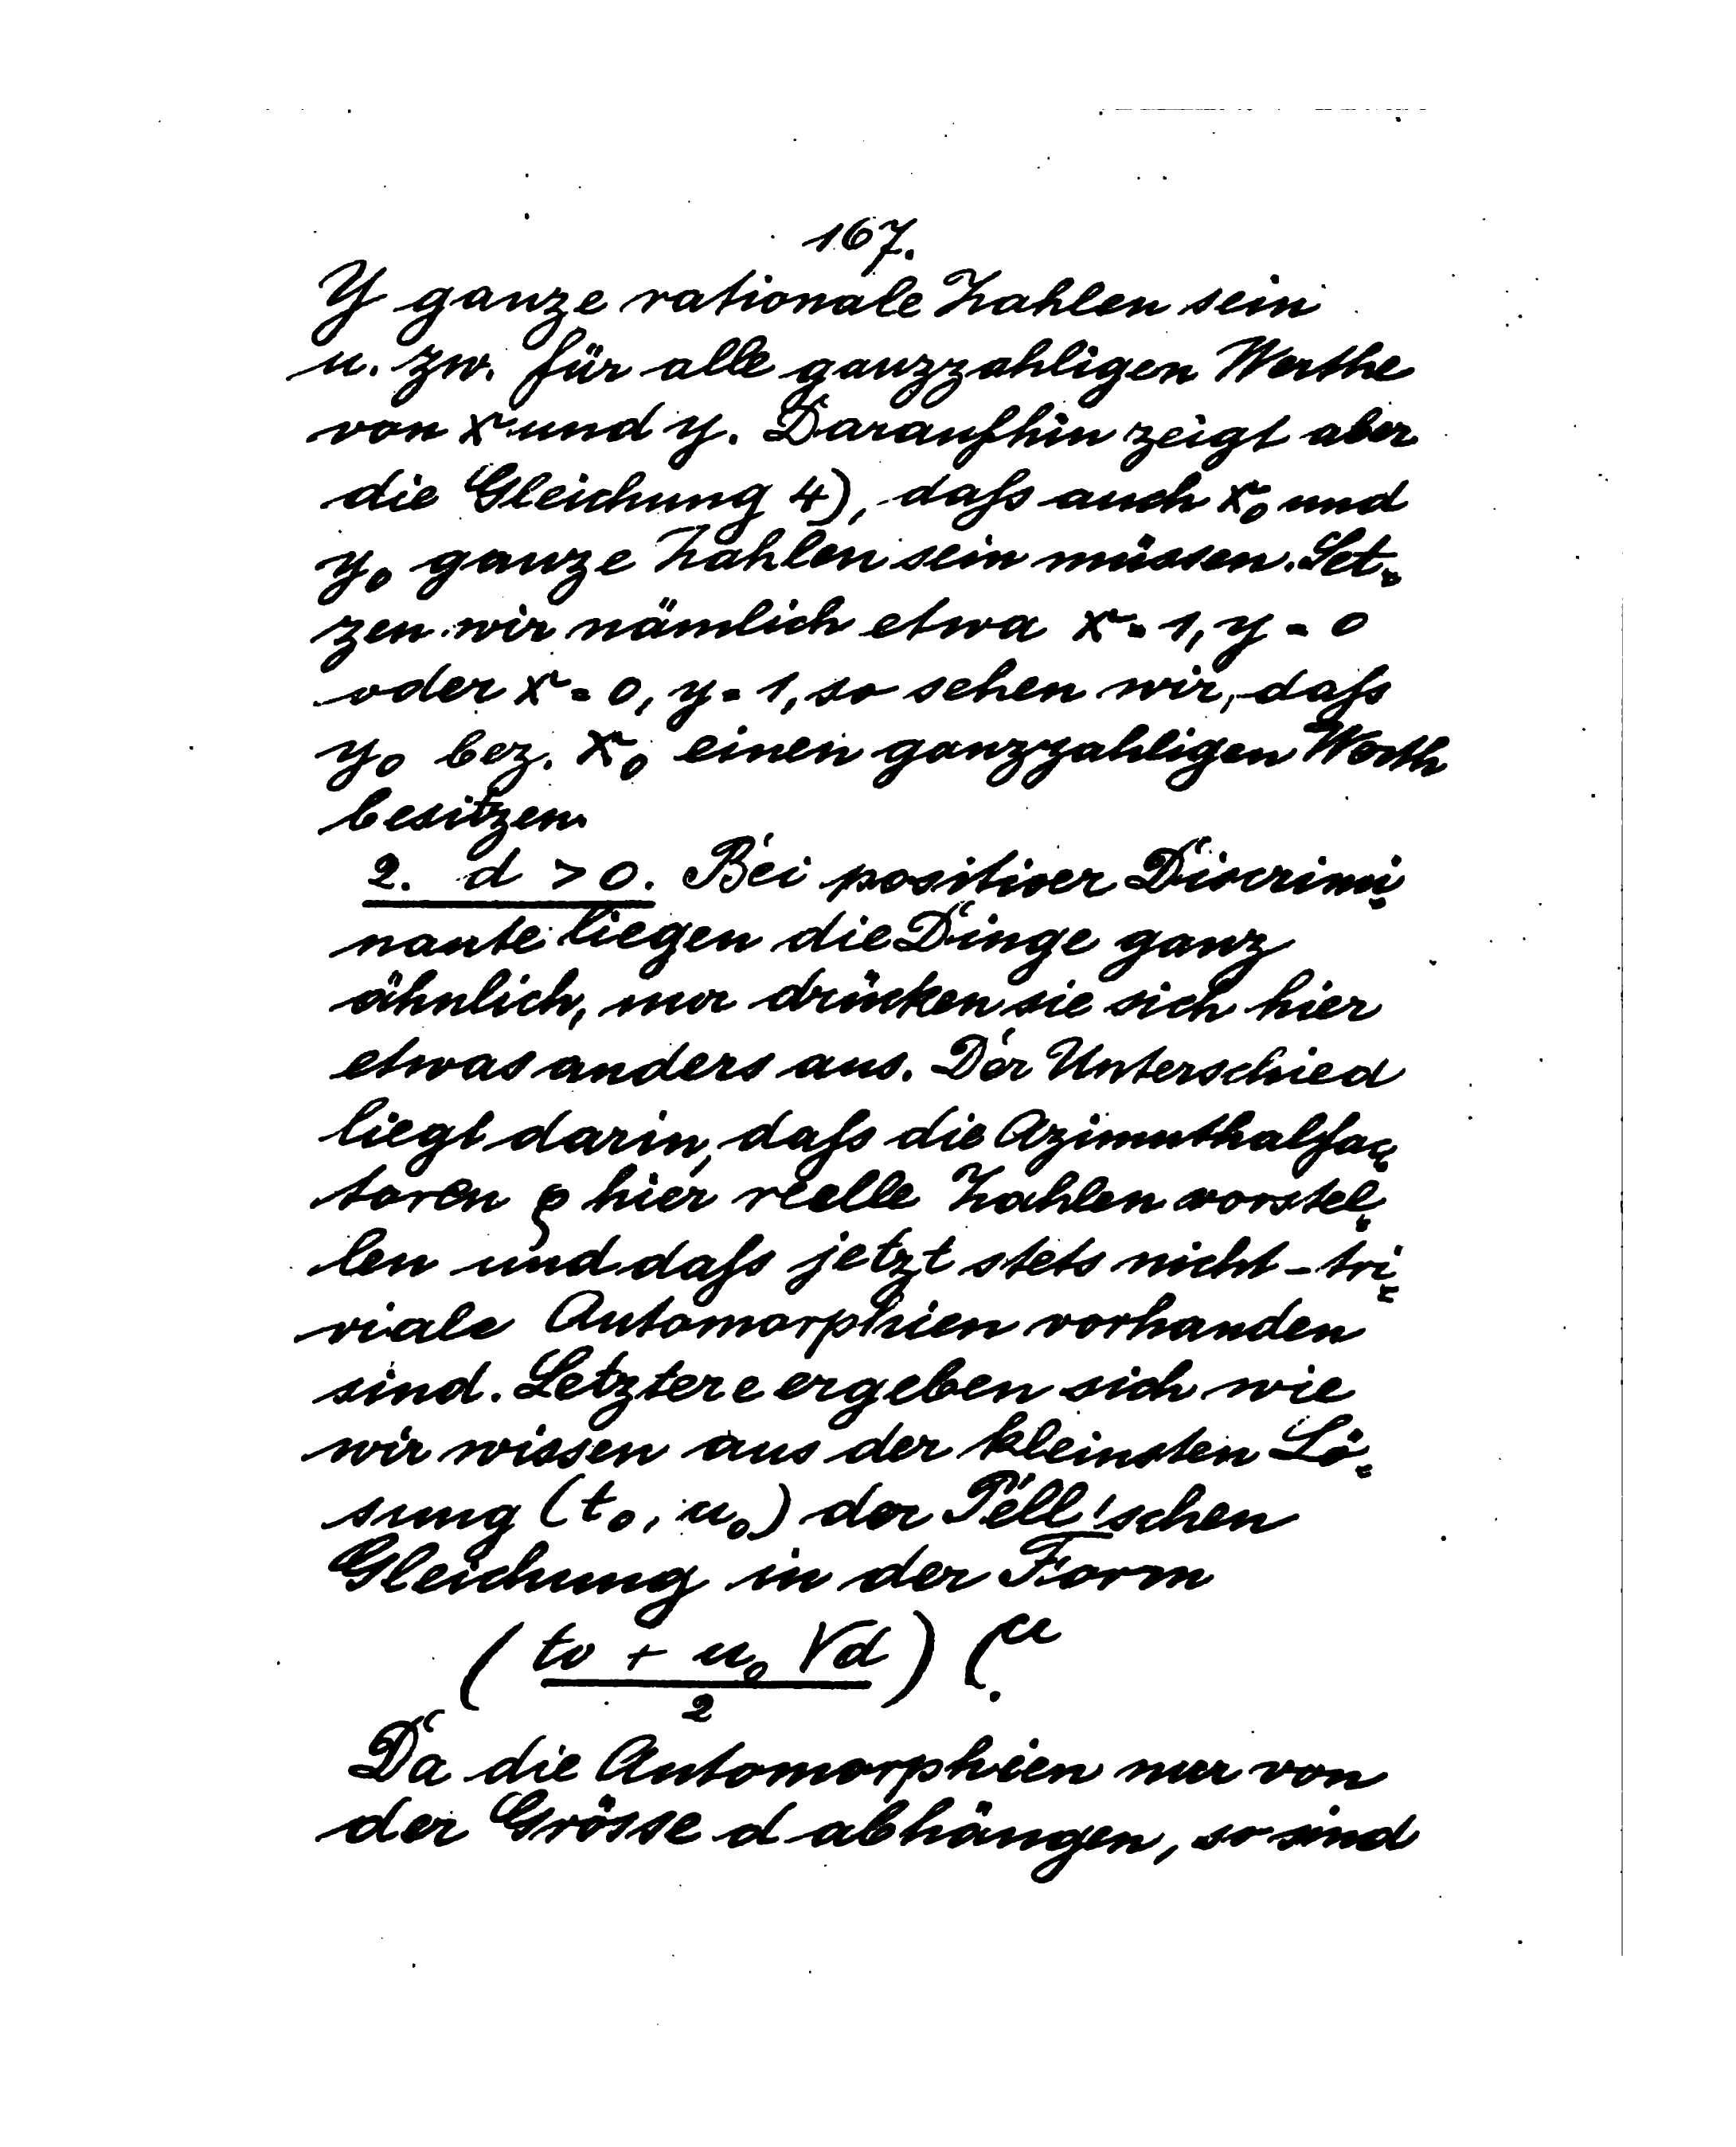 167.
Y ganze rationale Zahlen sein
u. zw. für alle ganzzahligen Werthe
von x und y. Daraufhin zeigt aber
die Gleichung 4), daſs auch x₀ und
y₀ ganze Zahlen sein müssen. Set-
zen wir nämlich etwa x = 1, y = 0
oder x = 0, y = 1, so sehen wir, daſs
y₀ bez. x₀ einen ganzzahligen Werth
besitzen.
2. d > 0. Bei positiver Discrimi-
nante liegen die Dinge ganz
ähnlich, nur drücken sie sich hier
etwas anders aus. Der Unterschied
liegt darin, daſs die Azimuthalfac-
toren ρ hier reelle Zahlen vorstel-
len und daſs jetzt stets nicht-tri-
viale Automorphien vorhanden
sind. Letztere ergeben sich wie
wir wissen aus der kleinsten Lö-
sung (t₀, u₀) der Pell'schen
Gleichung in der Form
( (t₀ + u₀ √d) / 2 )^μ.
Da die Automorphien nur von
der Grösse d abhängen, so sind